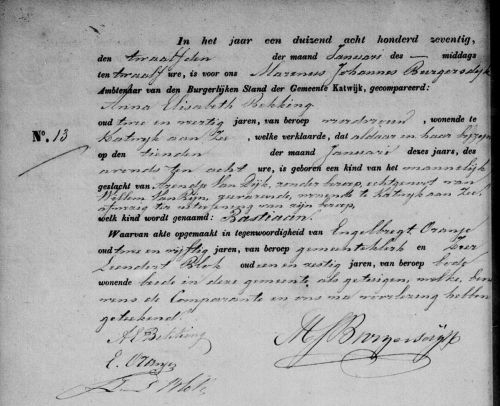 In het jaar een duizend acht honderd zeventig,
den twaalfden der maand Januari des — middags
ten twaalf ure, is voor ons Marinus Johannes Burgersdijk
Ambtenaar van den Burgerlijken Stand der Gemeente Katwijk, gecompareerd:
Anna Elisabeth Bekking
No. 13 oud twee en veertig jaren, van beroep vroedvrouw, wonende te
Katwijk aan Zee, welke verklaarde, dat aldaar en haar bijzijn
op den tienden der maand Januari dezes jaars, des
avonds ten acht ure, is geboren een kind van het mannelijk
geslacht van Arendje van Dijk, zonder beroep, echtgenoot van
Willem van Rijn, wonende te Katwijk aan Zee,
afwezig ter uitoefening van zijn beroep,
welk kind wordt genaamd: Bastiaan.
Waarvan akte opgemaakt in tegenwoordigheid van Engelbregt Oranje
oud twee en vijftig jaren, van beroep gemeenteklerk en
Leendert Blok oud een en zestig jaren, van beroep bode
wonende beide in deze gemeente, als getuigen, welke, benevens
de Comparante en ons na voorlezing hebben
geteekend.
AE Bekking
MJ Burgersdijk
E. Oranje
L Blok